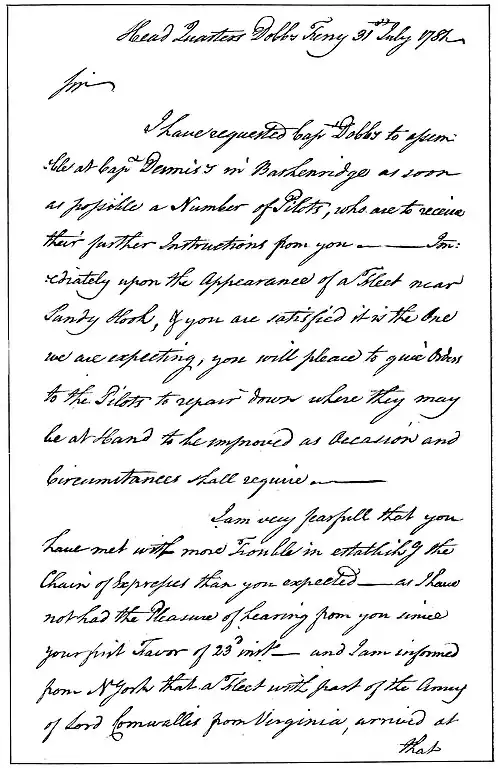 Head Quarters Dobbs Ferry 31st July 1781
Sir
I have requested Capt Dobbs to assem:
:ble at Capt Dennis's in Baskenridge as soon
as possible a Number of Pilots, who are to receive
their further Instructions from you — Im:
:ediately upon the Appearance of a Fleet near
Sandy Hook, If you are satisfied it is the One
we are expecting, you will please to give Orders
to the Pilots to repair down where they may
be at Hand to be improved as Occasion and
Circumstances shall require —
I am very fearfull that you
have met with more Trouble in establishg the
Chain of Expresses than you expected — as I have
not had the Pleasure of hearing from you since
your first Favor of 23d inst — and I am informed
from N York that a Fleet with part of the Army
of Lord Cornwallis from Virginia, arrived at
that